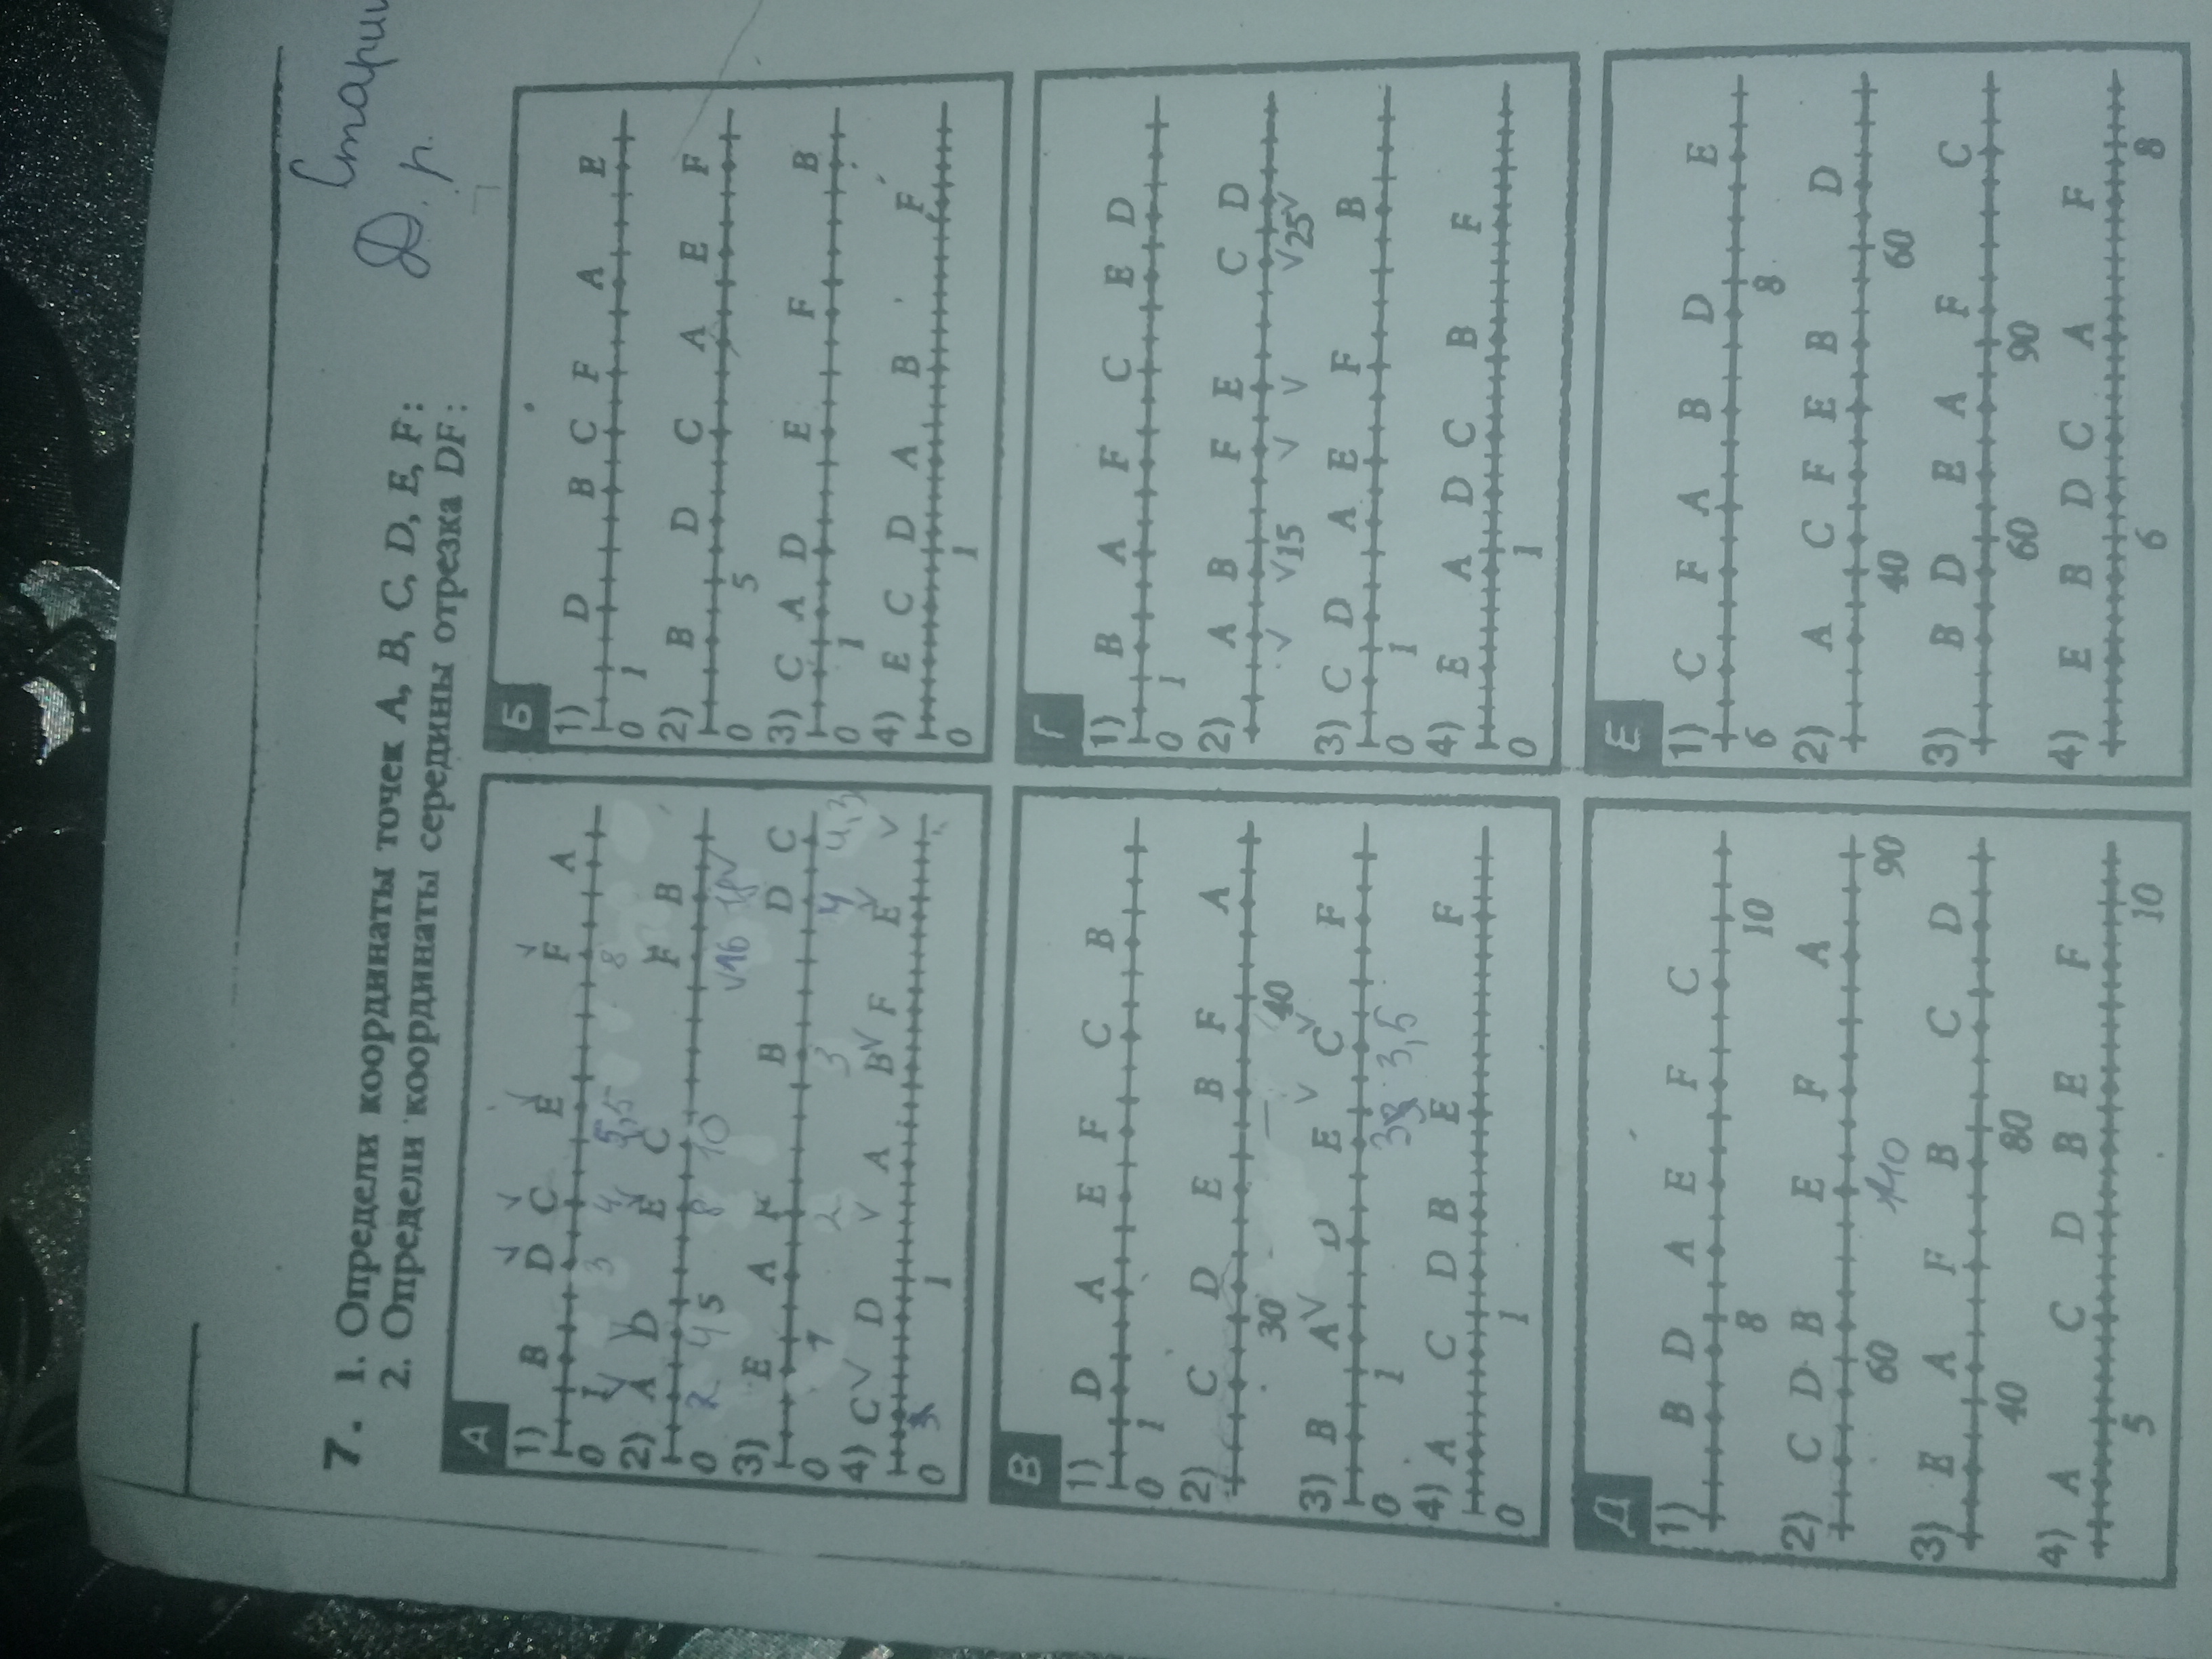 Старин
Д. р.
7. 1. Определи координаты точек A, B, C, D, E, F:
2. Определи координаты середины отрезка DF:
А
1) B D C E F A
0 1 3 4 5,5 8
2) A D E C F B
0 2 4 5 8 10 16 18
3) E A F B D C
0 1 2 3 4 4,3
4) C D A B F E
0 1
Б
1) D B C F A E
0 1
2) B D C A E F
0 5
3) C A D E F B
0 1
4) E C D A B F
0 1
В
1) D A E F C B
0 1
2) C D E B F A
30 40
3) B A D E C F
0 1 3 3,5
4) A C D B E F
0 1
Г
1) B A F C E D
0 1
2) A B F E C D
15 25
3) C D A E F B
0 1
4) E A D C B F
0 1
Д
1) B D A E F C
8 10
2) C D B E F A
60 110 90
3) E A F B C D
40 80
4) A C D B E F
5 10
Е
1) C F A B D E
6 8
2) A C F E B D
40 60
3) B D E A F C
60 90
4) E B D C A F
6 8